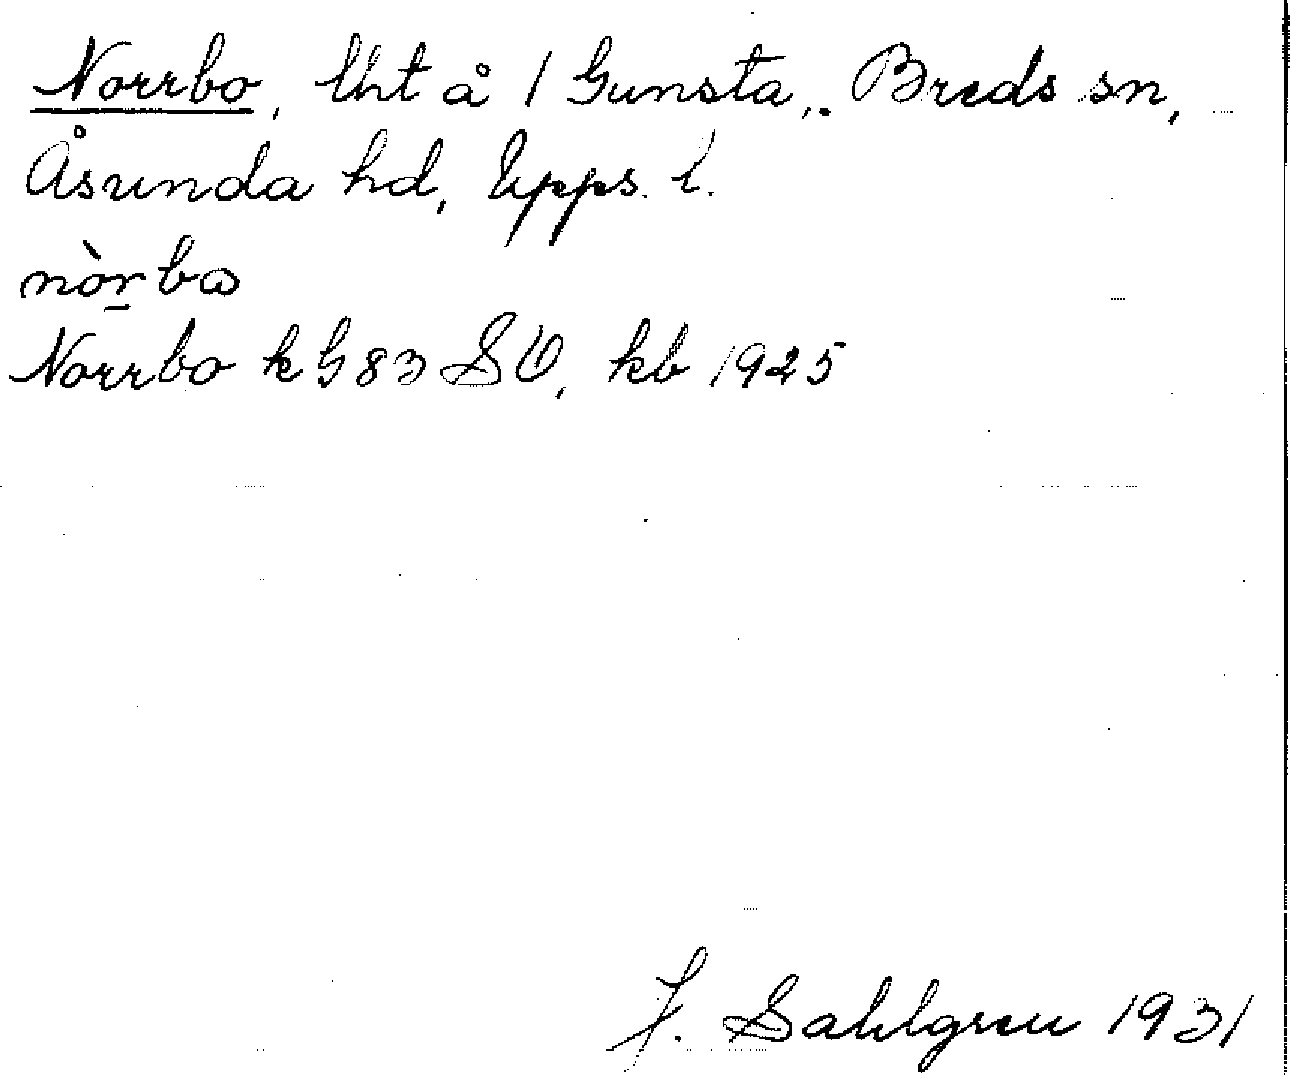 Norrbo, lht å 1 Gunsta, Breds sn,
Åsunda hd, Upps. l.
nòrbω
Norrbo k G 83 SO, kb 1925
J. Sahlgren 1931